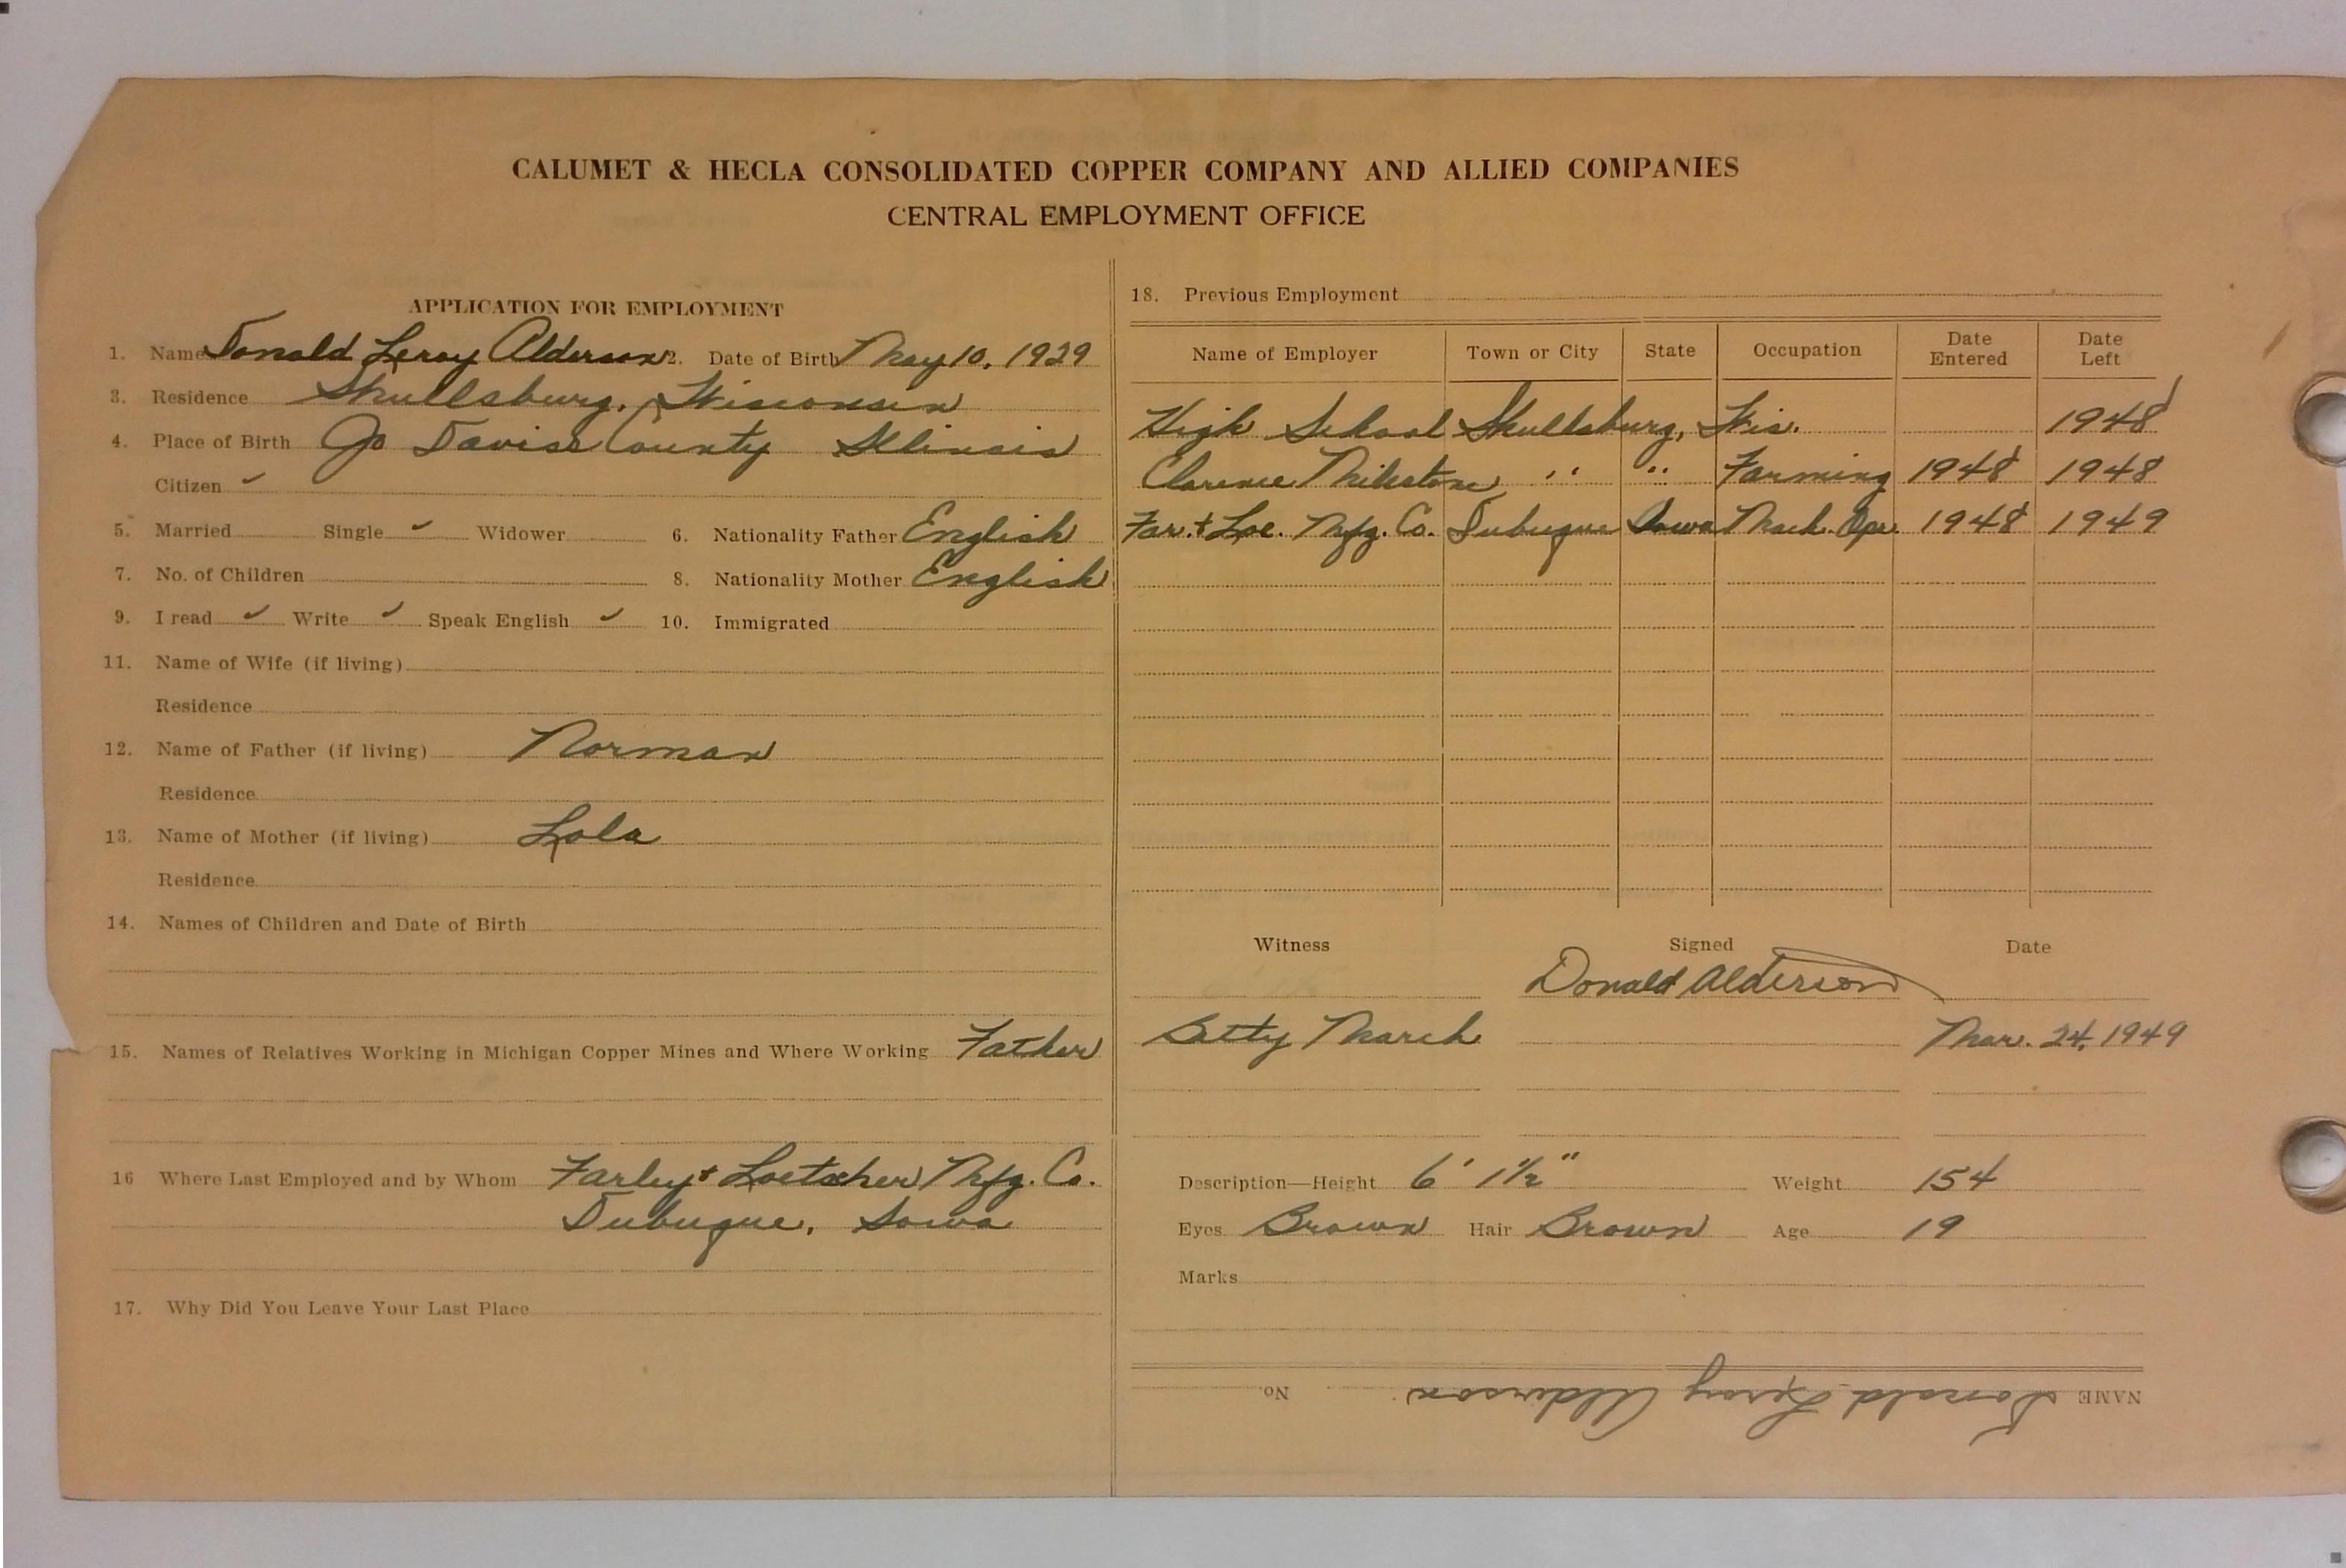 CALUMET & HECLA CONSOLIDATED COPPER COMPANY AND ALLIED COMPANIES
CENTRAL EMPLOYMENT OFFICE
APPLICATION FOR EMPLOYMENT
1. Name Donald Leroy Alderson 2. Date of Birth May 10, 1929
3. Residence Shullsburg, Wisconsin
4. Place of Birth Jo Daviss County Illinois
Citizen ✓
5. Married Single ✓ Widower 6. Nationality Father English
7. No. of Children 8. Nationality Mother English
9. I read ✓ Write ✓ Speak English ✓ 10. Immigrated
11. Name of Wife (if living)
Residence
12. Name of Father (if living) Norman
Residence
13. Name of Mother (if living) Lola
Residence
14. Names of Children and Date of Birth
15. Names of Relatives Working in Michigan Copper Mines and Where Working Father
16 Where Last Employed and by Whom Farley + Loetscher Mfg. Co.
Dubuque, Iowa
17. Why Did You Leave Your Last Place
18. Previous Employment
Name of Employer Town or City State Occupation Date Entered Date Left
High School Shullsburg, Wis. 1948
Clarence " " Farming 1948 1948
Far. + Loe. Mfg. Co. Dubuque Iowa Mach. Opr. 1948 1949
Witness Signed Date
Donald Alderson
Betty March Mar. 24, 1949
Description—Height 6' 1½" Weight 154
Eyes Brown Hair Brown Age 19
Marks
NAME Donald Leroy Alderson No.